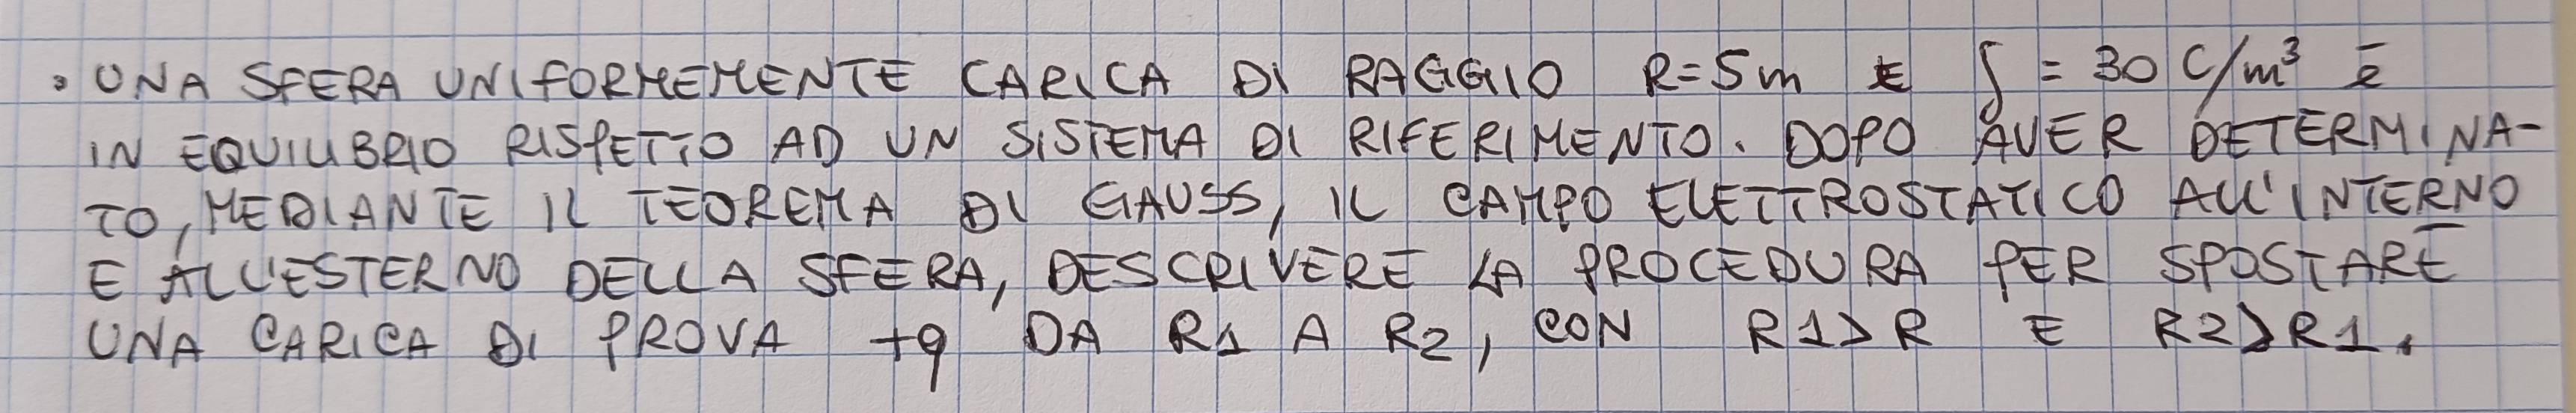 • UNA SFERA UNIFORMEMENTE CARICA DI RAGGIO R=5m E ρ = 30 C/m³ è
IN EQUILIBRIO RISPETTO AD UN SISTEMA DI RIFERIMENTO. DOPO AVER DETERMINA-
TO, MEDIANTE IL TEOREMA DI GAUSS, IL CAMPO ELETTROSTATICO ALL'INTERNO
E ALL'ESTERNO DELLA SFERA, DESCRIVERE LA PROCEDURA PER SPOSTARE
UNA CARICA DI PROVA +q DA R1 A R2, CON R1>R E R2>R1.